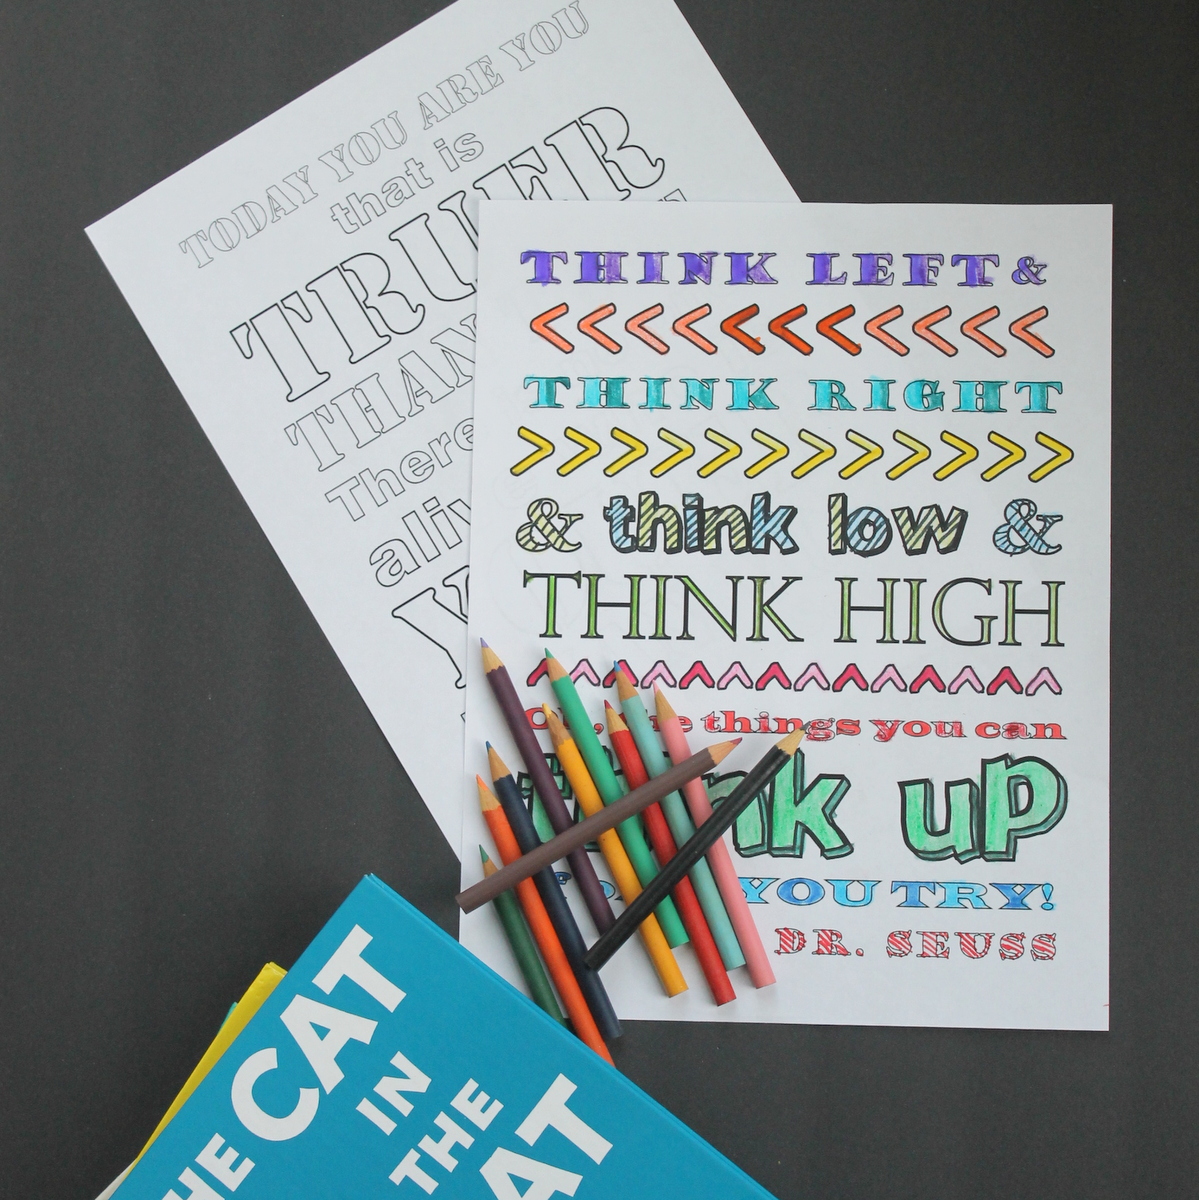 TODAY YOU ARE YOU
that is
TRUER
THAN
There
THINK LEFT &
THINK RIGHT
& think low &
THINK HIGH
the things you can
uP
YOU TRY!
DR. SEUSS
THE CAT
IN
THE